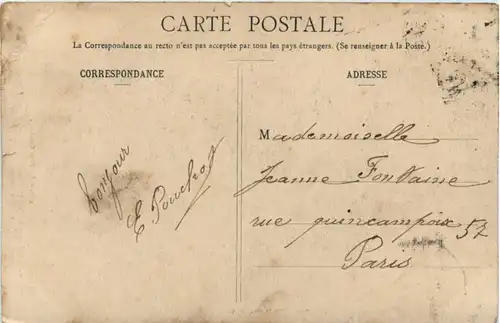 CARTE POSTALE
La Correspondance au recto n'est pas acceptée par tous les pays étrangers. (Se renseigner à la Poste.)
CORRESPONDANCE
ADRESSE
bonjour
E
Mademoiselle
Jeanne Fontaine
rue quincampoix 57
Paris